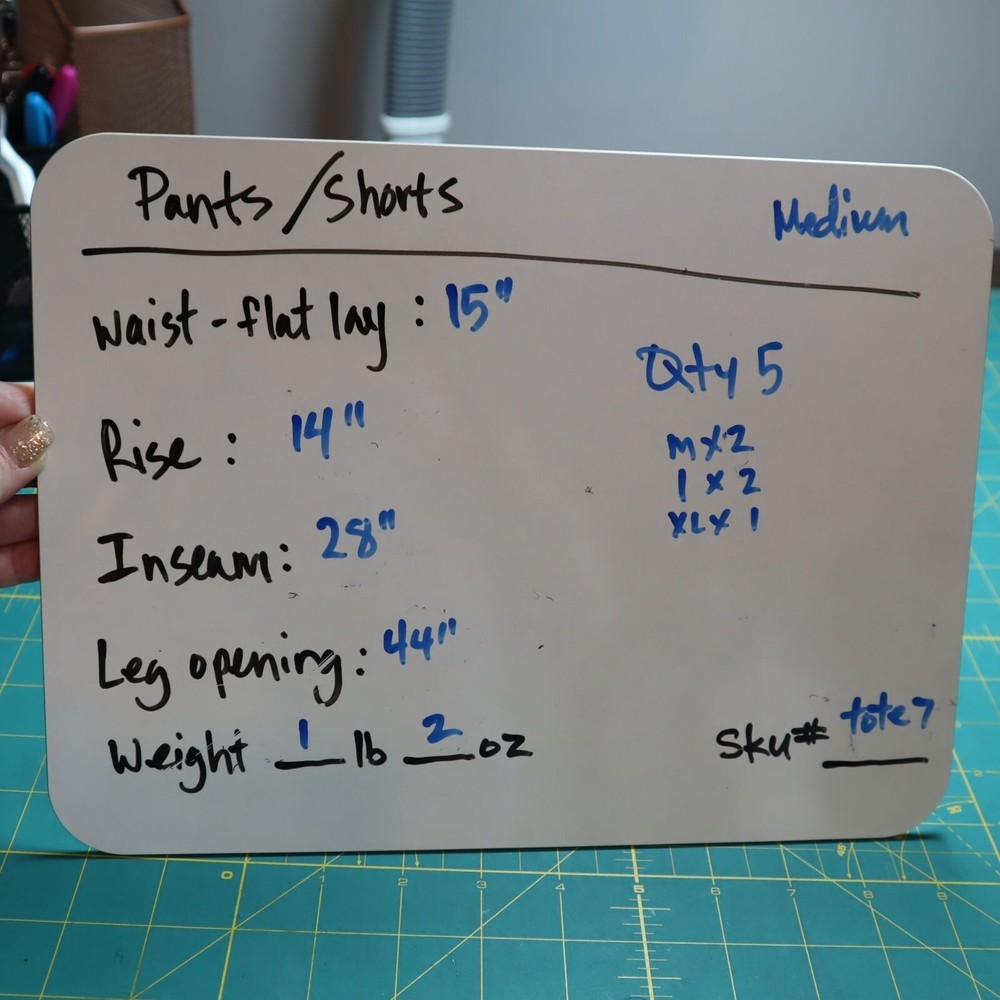 Pants/Shorts
Medium
Waist-flat lay: 15"
Qty 5
Rise: 14"
m x 2
1 x 2
XL x 1
Inseam: 28"
Leg opening: 44"
Weight 1 lb 2 oz
Sku# tote7
0 1 2 3 4 5 6 7 8 9